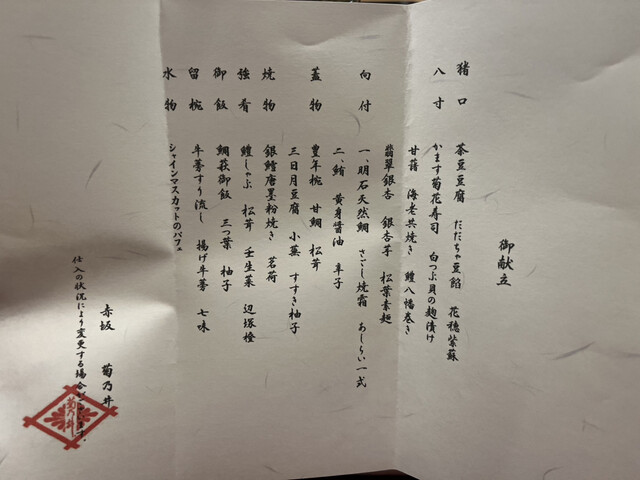 御献立
猪口 茶豆豆腐 だだちゃ豆餡 花穂紫蘇
八寸 かます菊花寿司 白つぶ貝の麹漬け
甘藷 海老共焼き 鱧八幡巻き
翡翠銀杏 銀杏芋 松葉素麺
向付 一、明石天然鯛 さごし焼霜 あしらい一式
二、鮪 黄身醤油 辛子
蓋物 豊年椀 甘鯛 松茸
三日月豆腐 小蕪 すすき柚子
焼物 銀鱈唐墨粉焼き 茗荷
強肴 鱧しゃぶ 松茸 壬生菜 辺塚橙
御飯 鯛萩御飯 三つ葉 柚子
留椀 牛蒡すり流し 揚げ牛蒡 七味
水物 シャインマスカットのパフェ
赤坂 菊乃井
仕入の状況により変更する場合がございます。
菊乃井